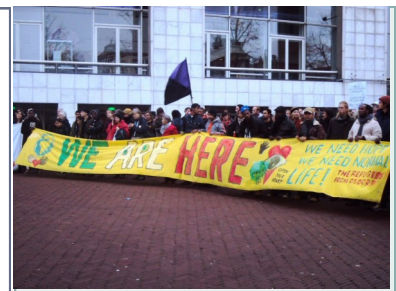 WE ARE HERE
WE NEED HELP
WE NEED NORMAL
LIFE!
THE REFUGEES